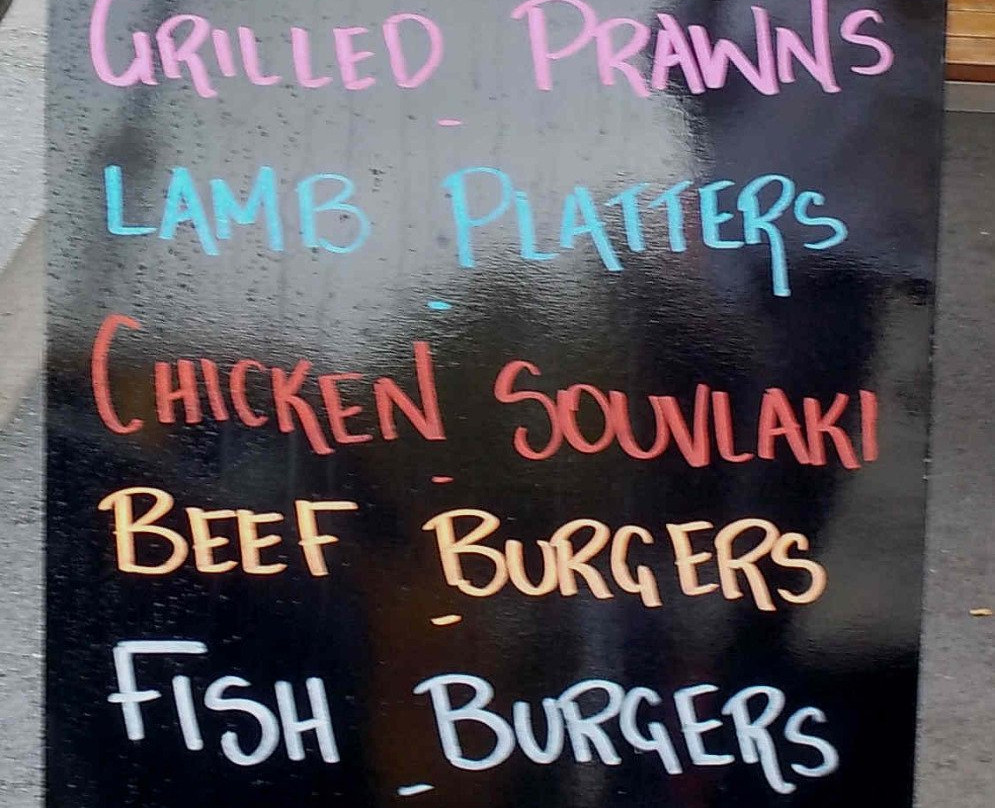 GRILLED PRAWNS
-
LAMB PLATTERS
-
CHICKEN SOUVLAKI
-
BEEF BURGERS
-
FISH BURGERS
-